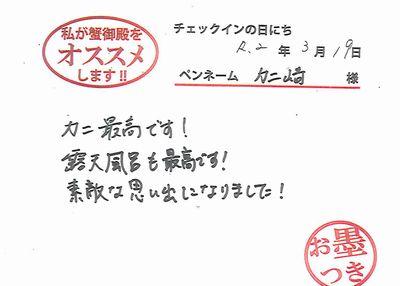 私が蟹御殿を
オススメ
します!!
チェックインの日にち
R.2年3月19日
ペンネーム カニ崎 様
カニ最高です!
露天風呂も最高です!
素敵な思い出になりました!
お墨
つき